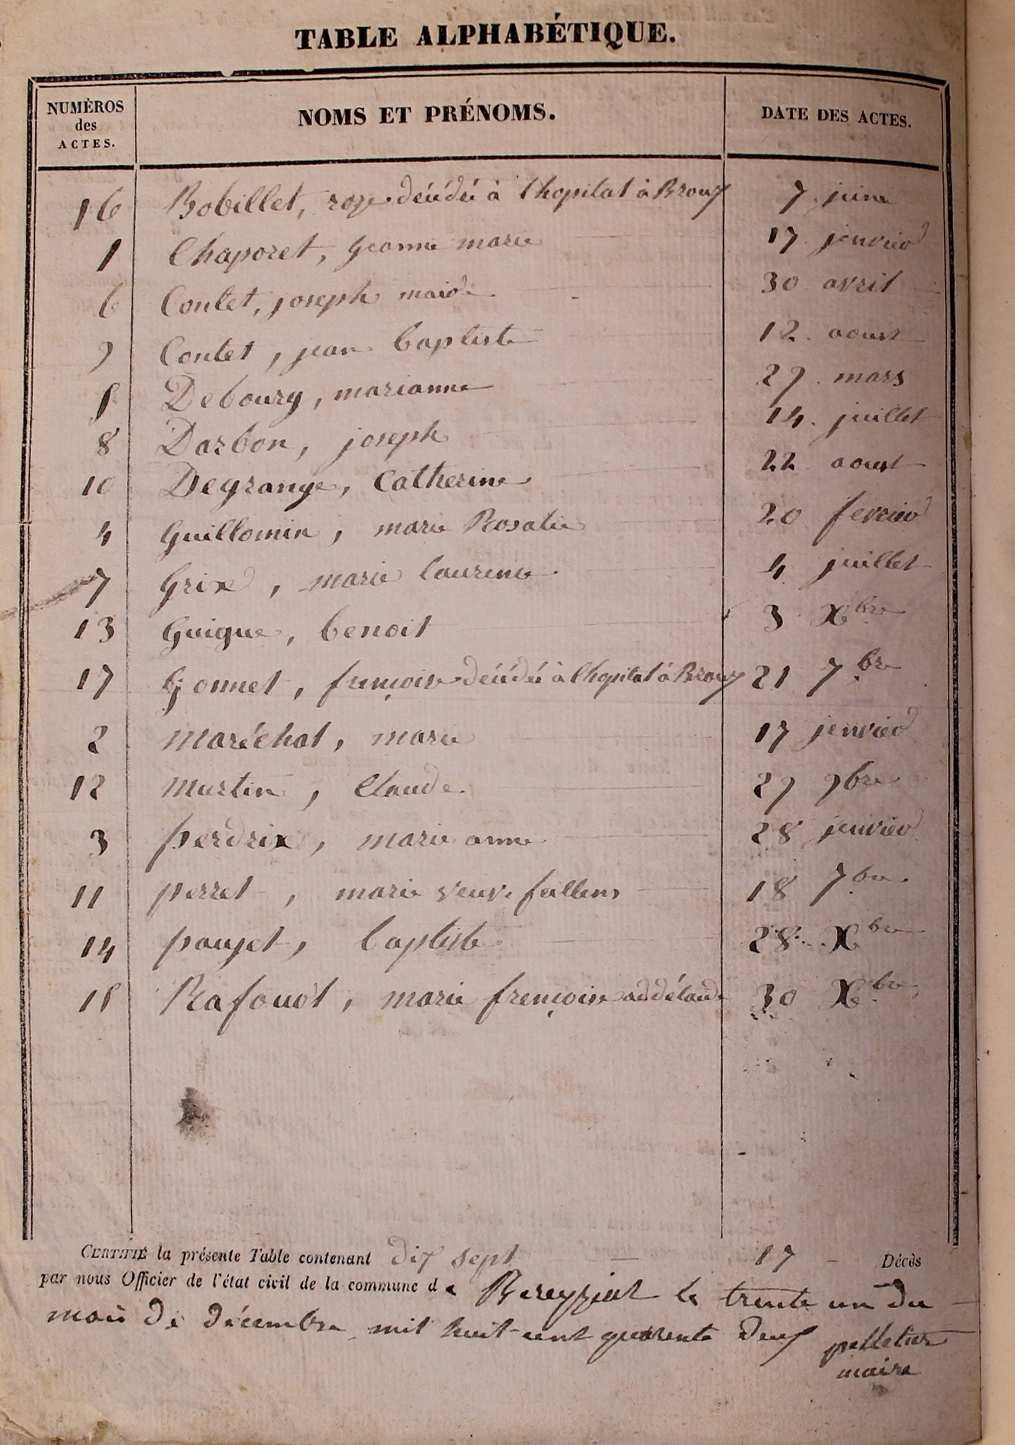 TABLE ALPHABÉTIQUE.
NUMÈROS des ACTES. NOMS ET PRÉNOMS. DATE DES ACTES.
16 Bobillet, roze décédée à l'hopital à Brouy 7 juin
1 Chaporet, Jeanne marie 17 janvier
6 Contet, joseph marie 30 avril
9 Contet, jean baptiste 12 aoust
5 Debourg, marianne 29 mars
8 Darbon, joseph 14 juillet
10 Degrange, Catherine 22 aoust
4 Guillomin, marie Rosalie 20 fevrier
7 Grix, marie laurence 4 juillet
13 Guigue, benoit 3 Xbre
17 Gonnet, françoise décédée à l'hopital à Brouy 21 7bre
2 Maréchal, marie 17 janvier
12 Martin, Claude 29 9bre
3 perdrix, marie anne 28 janvier
11 perret, marie veuve 18 7bre
14 pauget, baptiste 28 Xbre
15 Rafouot, marie françoise addélaude 30 Xbre
CERTIFIÉ la présente Table contenant dix sept 17 Décès
par nous Officier de l'état civil de la commune de Bereyziat le trente un du
mois de décembre mil huit cent quarente deux pelletier
maire